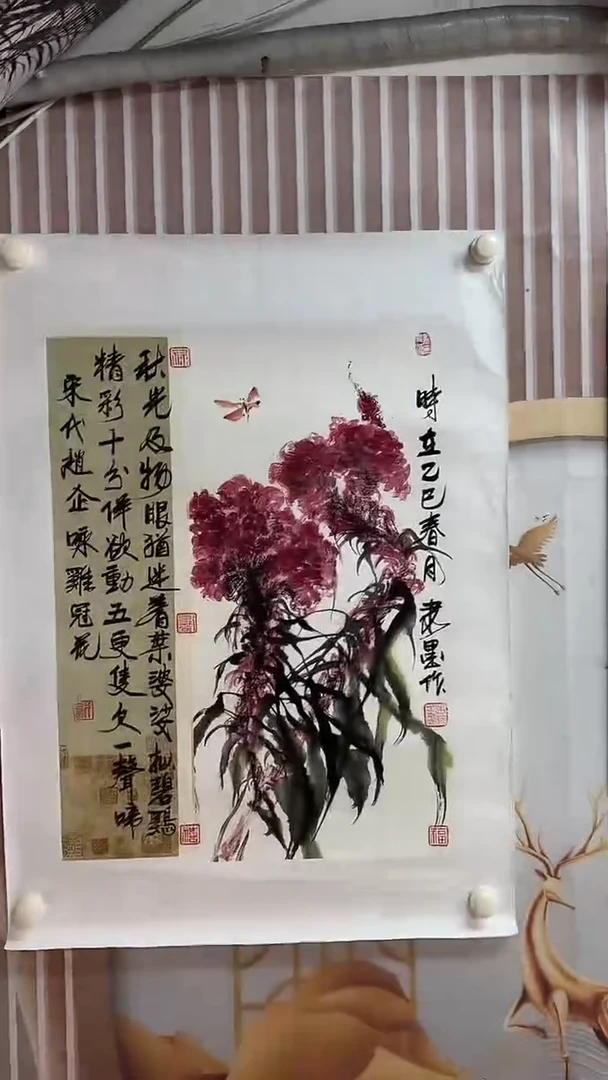 時在乙巳春月
墨作
秋光及物眼猶迷着葉婆娑拟碧鷄
精彩十分佯欲動五更隻欠一聲啼
宋代趙企咏雞冠花